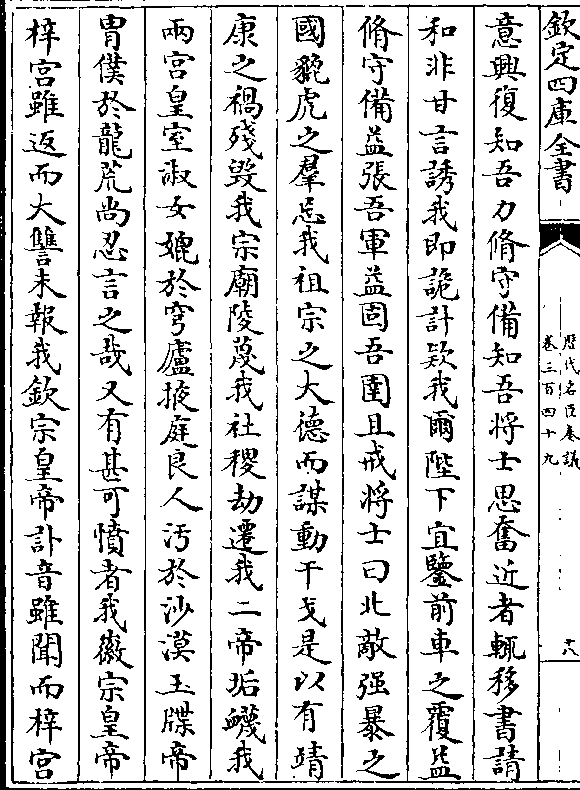 欽定四庫全書
歷代名臣奏議
卷三百四十九
十八
意興復知吾力脩守備知吾將士思奮近者輒移書請
和非甘言誘我即詭計欵我爾陛下宜鑒前車之覆益
脩守備益張吾軍益固吾圉且戒將士曰北敵强暴之
國貔虎之羣忘我祖宗之大德而謀動干戈是以有靖
康之禍殘毁我宗廟陵蔑我社稷劫遷我二帝垢衊我
兩宫皇室淑女媲於穹廬掖庭良人汚於沙漠王牒帝
胄僕於龍荒尚忍言之哉又有甚可憤者我徽宗皇帝
梓宫雖返而大讐未報我欽宗皇帝訃音雖聞而梓宫